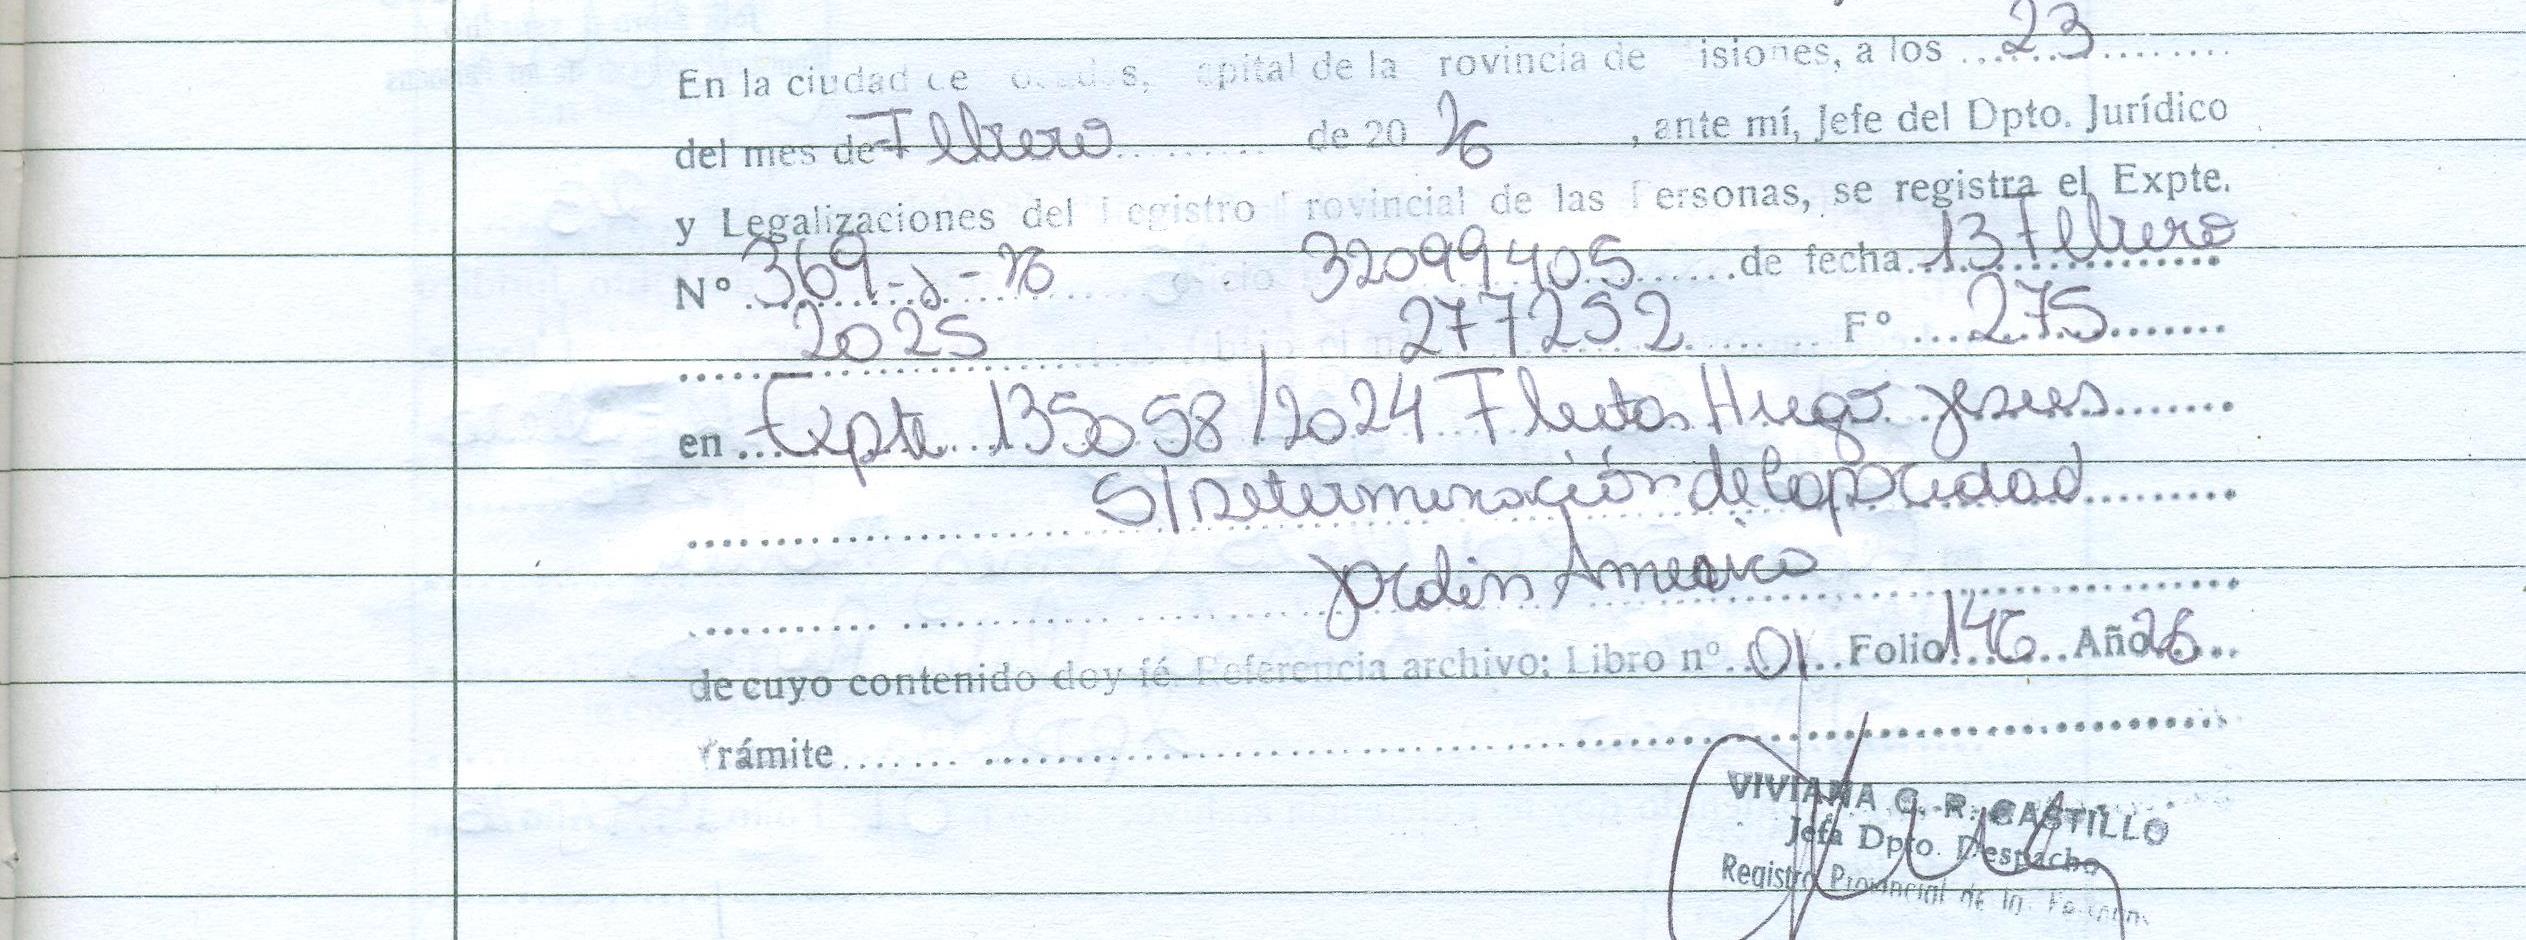 En la ciudad de osadas, apital de la rovincia de isiones, a los 23
del mes de Febrero de 20 26, ante mí, Jefe del Dpto. Jurídico
y Legalizaciones del Registro Provincial de las Personas, se registra el Expte.
N° 369-J-26 oficio 32099405 de fecha 13 Febrero
2025 277252 F° 275
en Expte 135058/2024 Fleitas Hugo Jesus
S/Determinación de Capacidad
Jardin America
de cuyo contenido doy fé. Referencia archivo: Libro n° 01 Folio 146 Año 26
Trámite
VIVIANA C. R. CASTILLO
Jefa Dpto. Despacho
Registro Provincial de las Personas